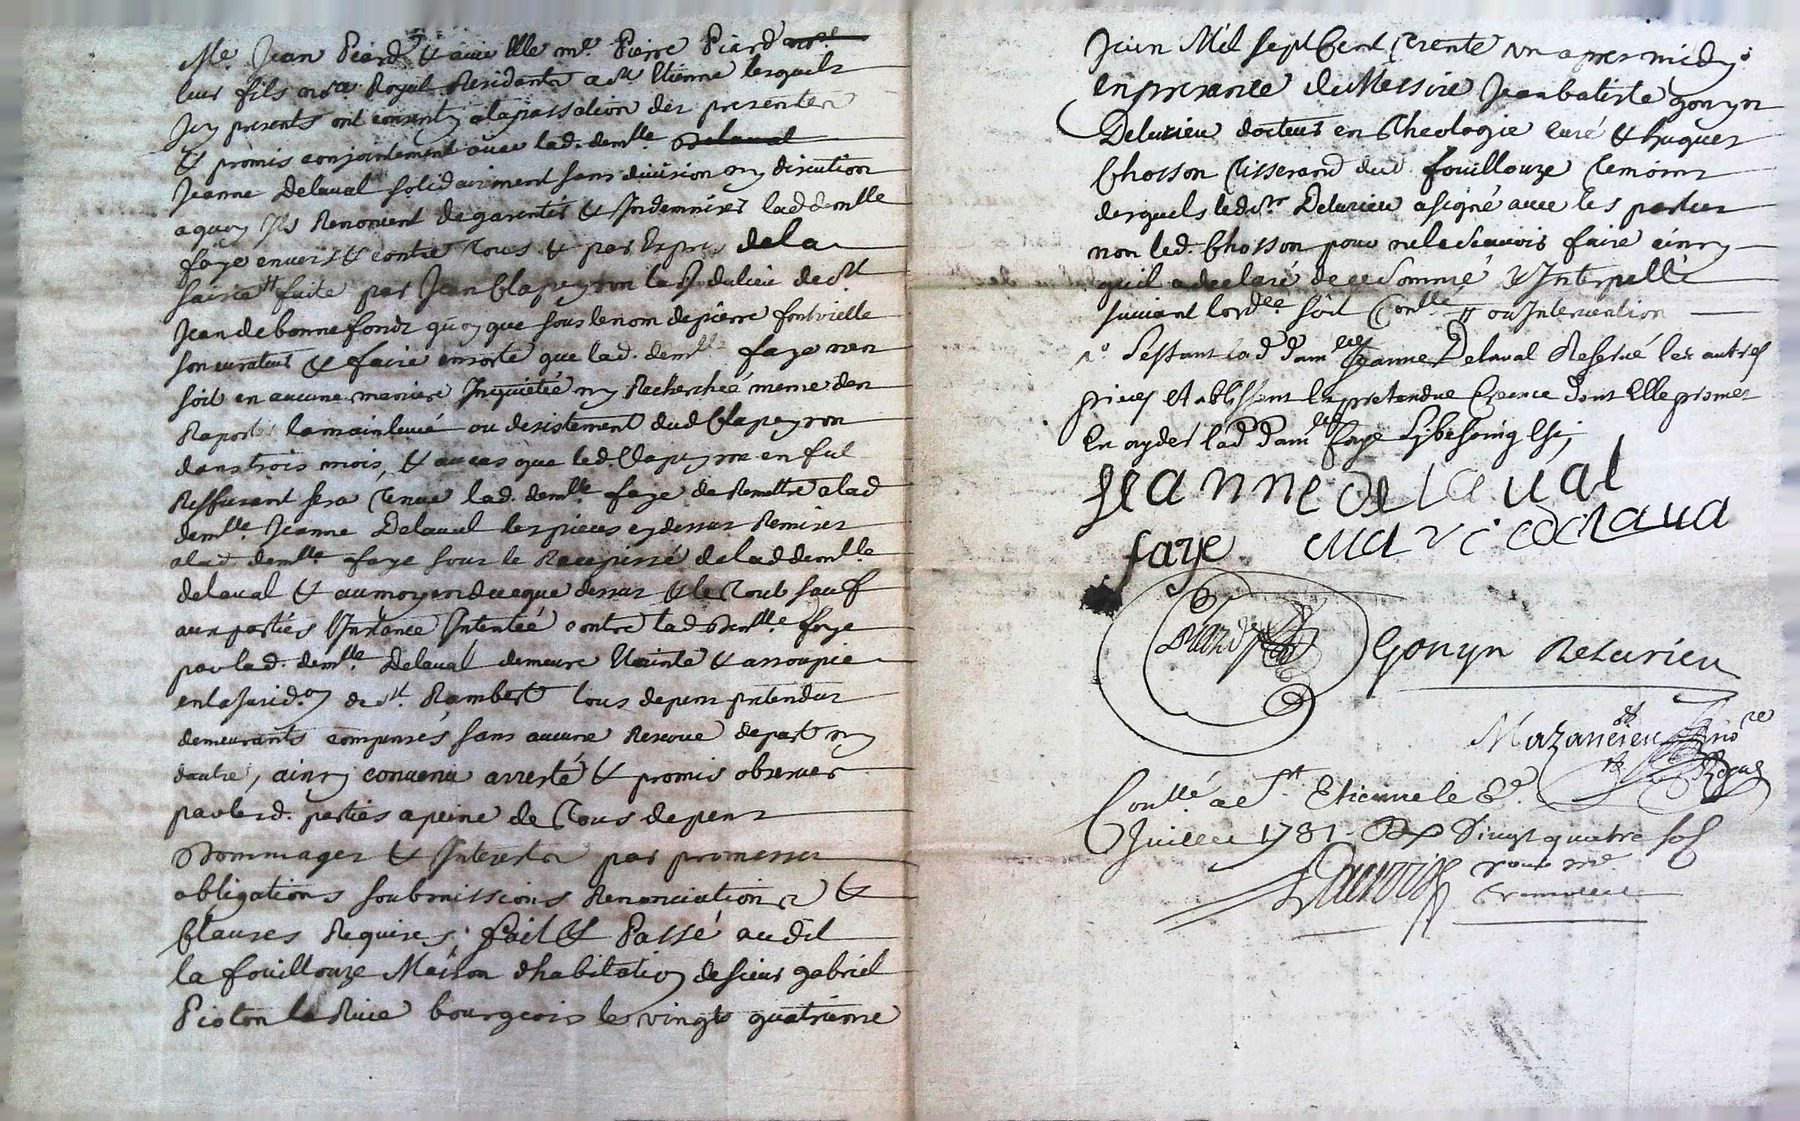 Me. Jean Piard & avec elle me. Pierre Piard nore
leur fils nore. Royal Residants a St. Etienne lesquels
Icy presents ont consenty a la passation des presentes
& promis conjointement avec lad. demlle. Delaval
Jeanne Delaval solidairement sans division ny discution
a quoy Ils Renoncent de garentir & Indemniser lad demlle
faye envers & contre Tous & par Expres de la
saisie faite par Jean Clapeyron du lieu de St.
Jean de bonnefonds quoy que sous le nom de pierre fontvielle
son curateur & faire en sorte que lad. demlle faye n'en
soit en aucune maniere Inquietée ny Recherchée meme d'en
Raporter la mainlevée ou desistement dud Clapeyron
dans trois mois, & au cas que led. Clapeyron en fut
Reffusant sera Tenue lad. demlle faye de Remettre a lad
demlle. Jeanne Delaval les pieces cy dessus Remises
a lad. demlle. faye sous le Recepissé de lad demlle.
delaval & au moyen de ce que dessus & le Tout sauf
aux parties Instance Intentée contre lad Demlle. faye
par lad. demlle. Delaval demeure Eteinte & assoupie
en la Jurid.on de St. Rambert tous depens pretendus
demeurants compensés sans aucune Reserve de part ny
dautre, ainsy convenu arresté & promis observer
par lesd. parties a peine de Tous depens
Dommages & Interests par promesses
obligations soubmissions Renonciations &
Clauses Requises; fait & Passé audit
la fouillouze Maison d'habitation de sieur gabriel
Pioton la Rive bourgeois le vingt quatrieme
Juin Mil sept Cent Trente un apres midy
en presence de Messire Jean batiste gonyn
Delurieu docteur en Theologie curé & hugues
Chosson Tisserand dud. fouillouze Temoins
desquels led. sr. Delurieu a signé avec les parties
non led. Chosson pour ne le scavoir faire ainsy
qu'il a declaré de ce sommé & Interpellé
suivant lordce. soit Conlle. ou Intervention
Restant lad damlle Jeanne Delaval Reservé les autres
pieces Etablissant la pretendue Creance dont Elle promet
En ayder lad damlle faye sy besoing Est
jeanne de laval
faye marie delaval
Piard
Gonyn Delurieu
Mazancieu no re
Royal
Conllé. a St. Etienne le 8e.
Juillet 1731. Vingt quatre sols